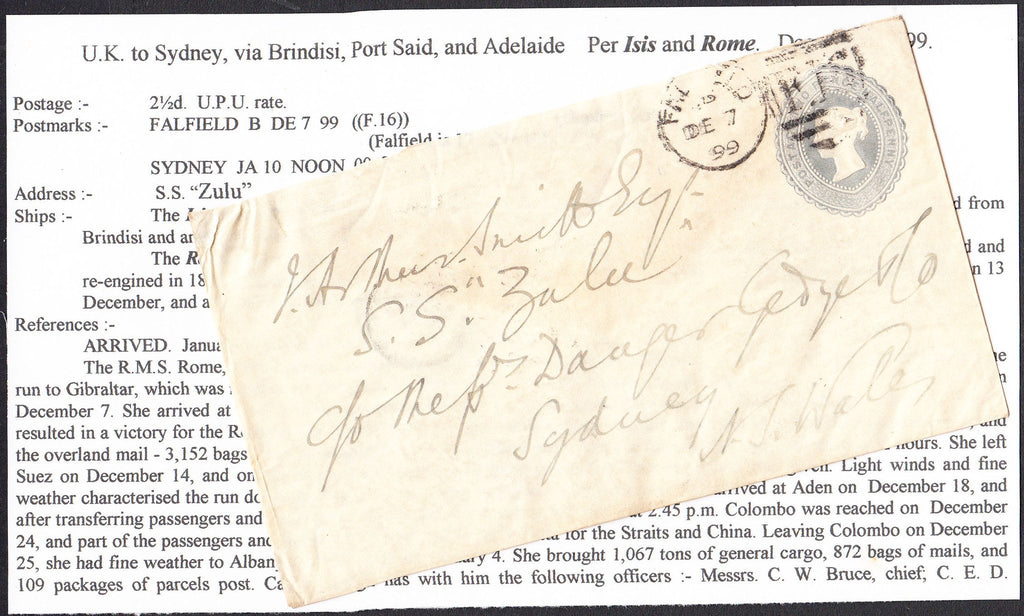 U.K. to Sydney, via Brindisi, Port Said, and Adelaide Per Isis and Rome. De 99.
Postage :- 2½d. U.P.U. rate.
Postmarks :- FALFIELD B DE 7 99 ((F.16))
(Falfield
SYDNEY JA 10 NOON
Address :- S.S. "Zulu"
Ships :- The d from
Brindisi and ar
The R d and
re-engined in 18 n 13
December, and a
References :-
ARRIVED. Janua
The R.M.S. Rome, ne
run to Gibraltar, which was n
December 7. She arrived at
resulted in a victory for the R , and
the overland mail - 3,152 bags hours. She left
Suez on December 14, and on Light winds and fine
weather characterised the run do arrived at Aden on December 18, and
after transferring passengers and at 2.45 p.m. Colombo was reached on December
24, and part of the passengers and for the Straits and China. Leaving Colombo on December
25, she had fine weather to Alban ary 4. She brought 1,067 tons of general cargo, 872 bags of mails, and
109 packages of parcels post. Ca has with him the following officers :- Messrs. C. W. Bruce, chief; C. E. D.
FAL
B
DE 7
99
F.16
POSTA
J. Arthur Smith Esqr.
S.S. "Zulu"
c/o Messrs. Dangar Gedye & Co
Sydney
N.S. Wales